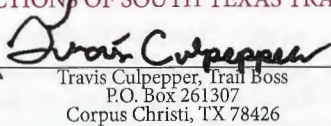 CTIONS OF SOUTH TEXAS TRA
Travis Culpepper
Travis Culpepper, Trail Boss
P.O. Box 261307
Corpus Christi, TX 78426